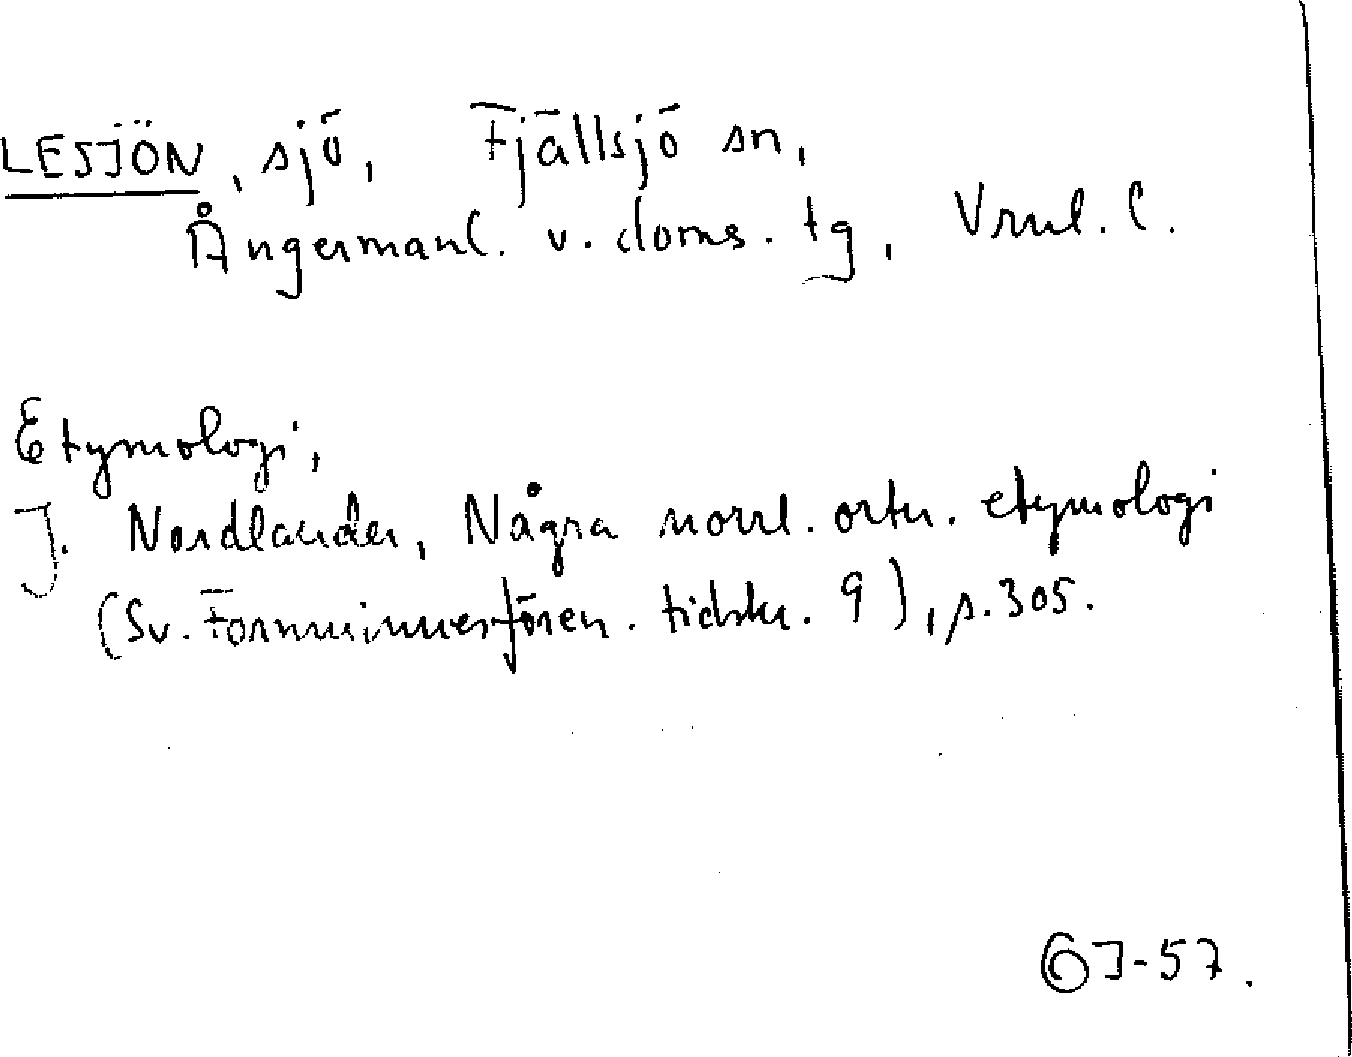 LESJÖN, sjö, Fjällsjö sn,
Ångermanl. v. doms. tg, Vrnl. l.
Etymologi,
J. Nordlander, Några norrl. ortn. etymologi
(Sv. Fornminnesfören. tidskr. 9), s. 305.